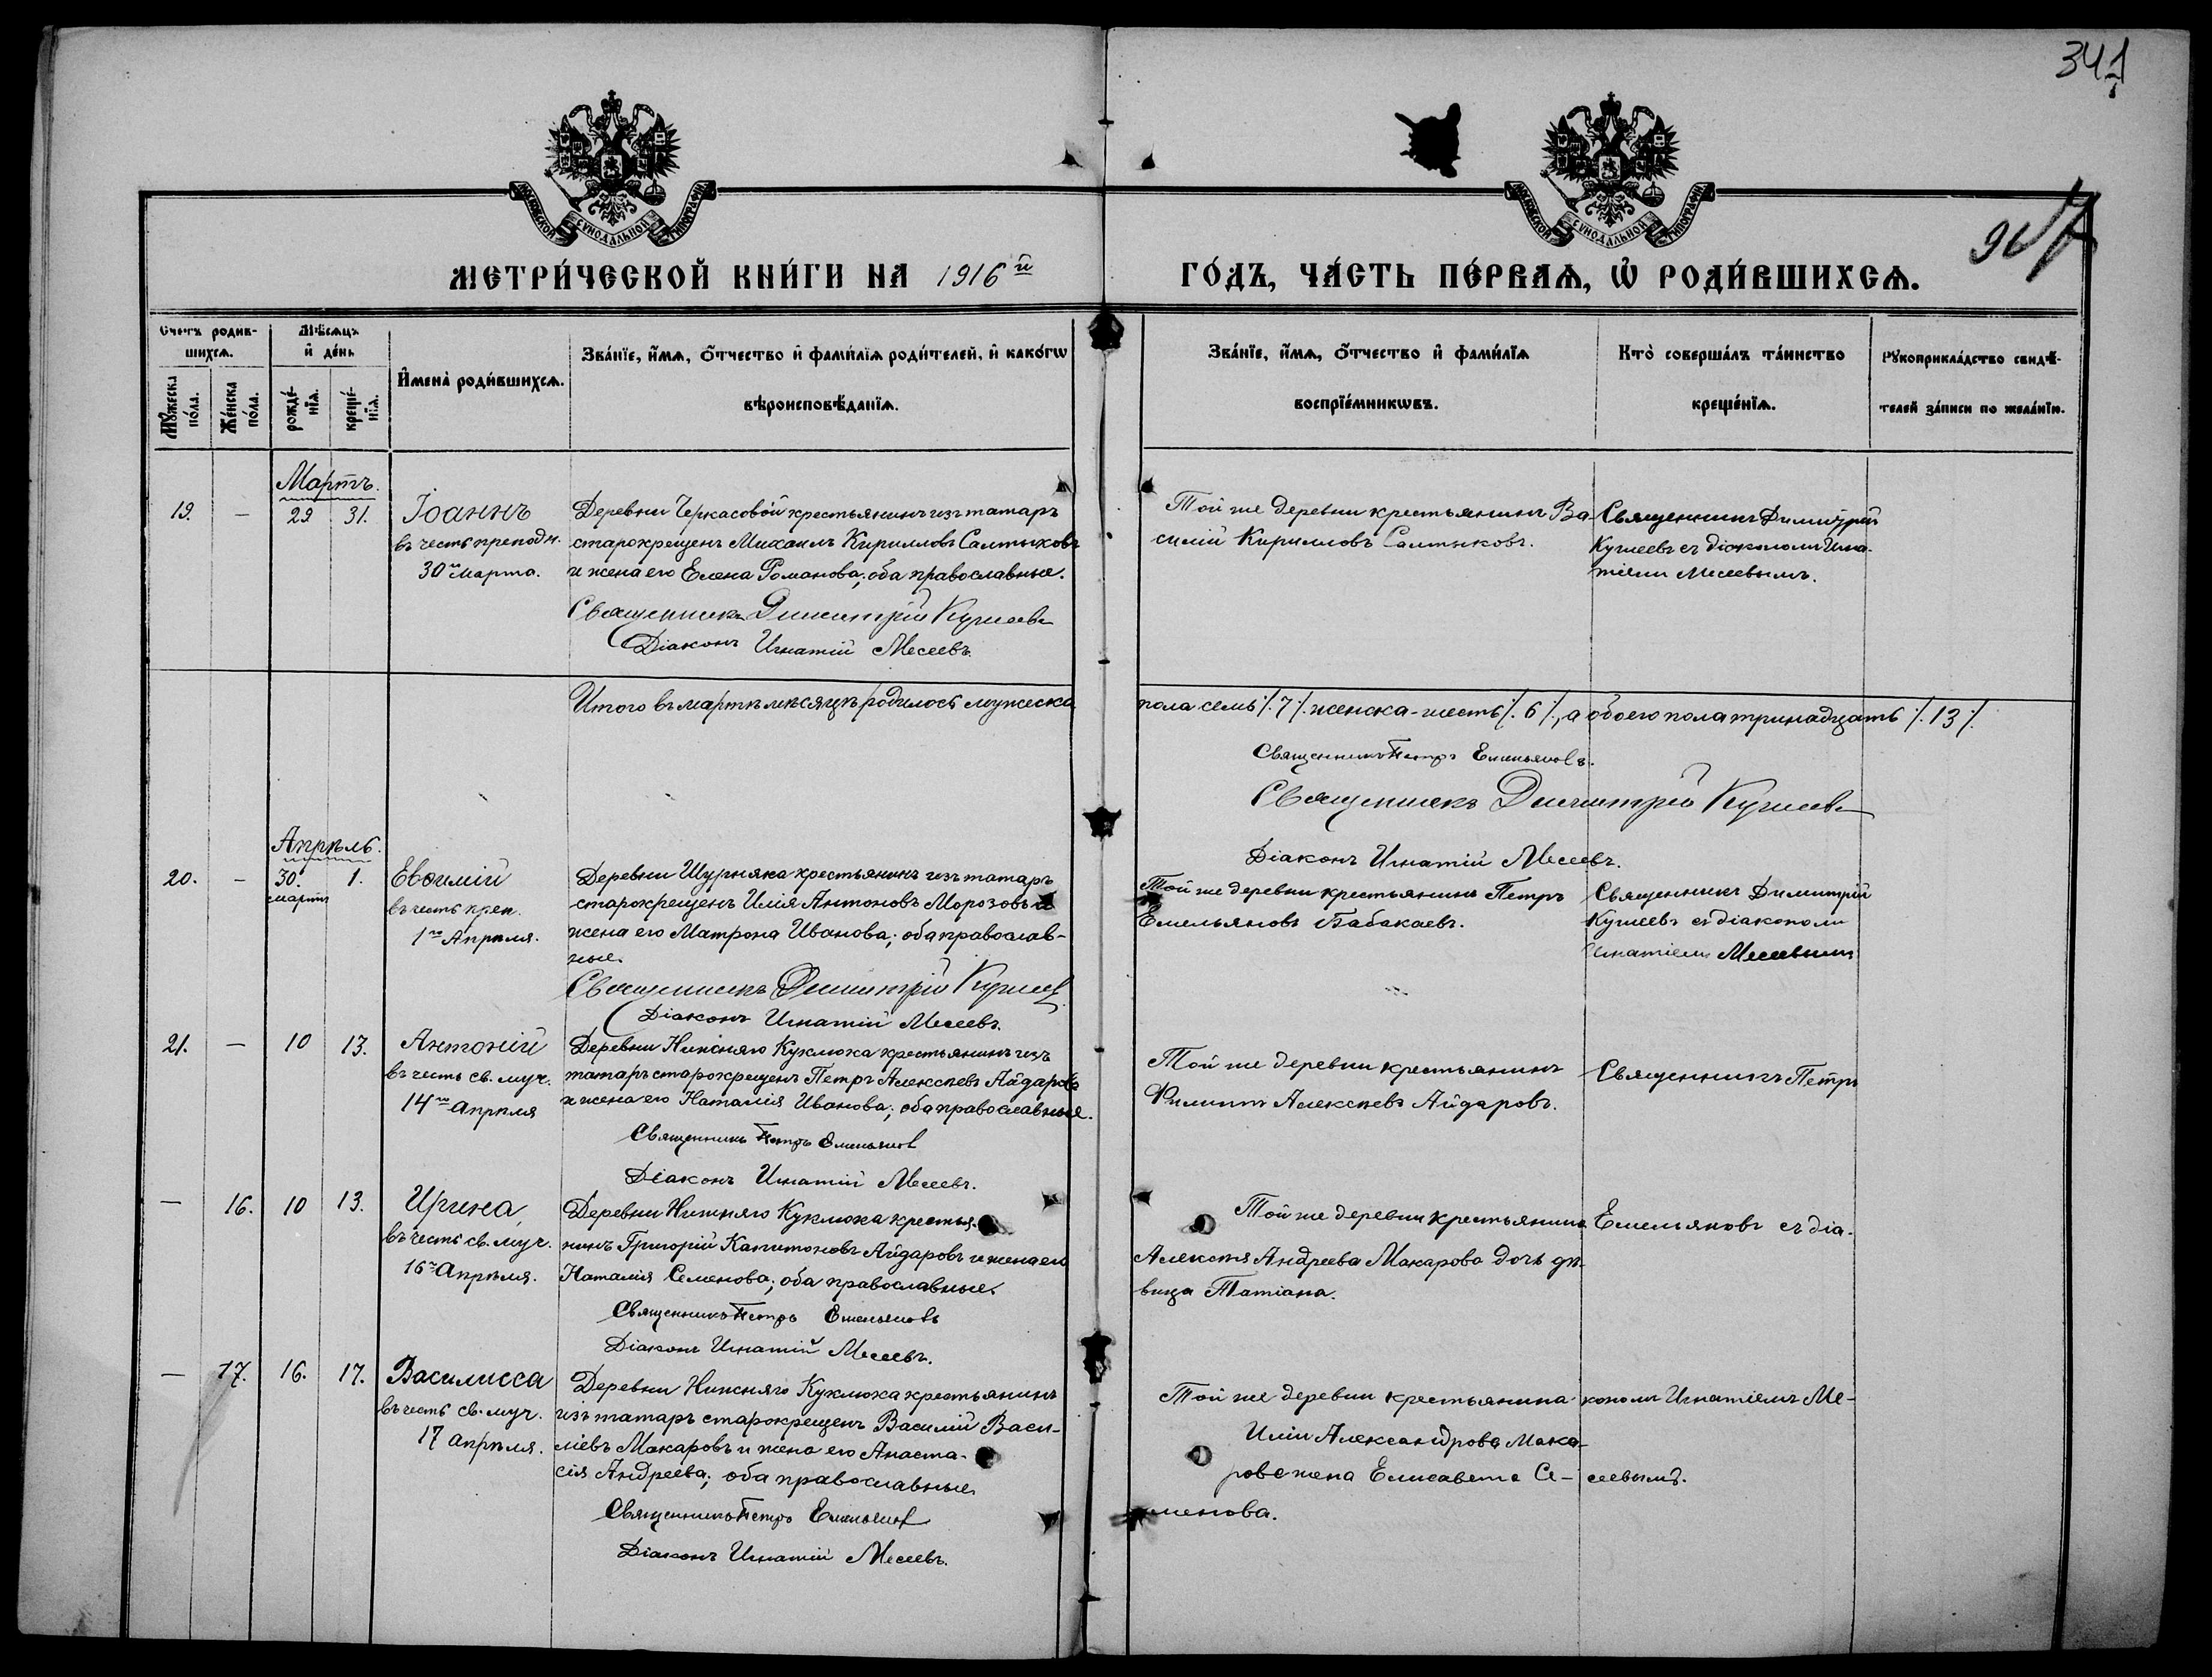 341
МОСКОВСКОЙ СѴНОДАЛЬНОЙ ТИПОГРАФІИ
МОСКОВСКОЙ СѴНОДАЛЬНОЙ ТИПОГРАФІИ
МЕТРИ́ЧЕСКОЙ КНИ́ГИ НА 1916й
ГО́ДЪ, ЧА́СТЬ ПЕ́РВАѦ, Ѡ҆ РОДИ́ВШИХСѦ.
Счетъ родив-
шихсѧ.
Мꙋ́жеска по́ла.
Же́нска по́ла.
Мѣ́сѧцъ
и҆ де́нь
рожде́-
нїѧ.
креще́-
нїѧ.
И҆мена̀ роди́вшихсѧ.
Зва́нїе, и҆́мѧ, ѻ҆́тчество и҆ фами́лїѧ роди́телей, и҆ како́гѡ
вѣроисповѣ́данїѧ.
Зва́нїе, и҆́мѧ, ѻ҆́тчество и҆ фами́лїѧ
воспрїе́мникѡвъ.
Кто̀ соверша́лъ та́инство
креще́нїѧ.
Рꙋкоприкла́дство свидѣ́-
телей за́писи по жела́нїю.
Мартъ.
19. — 29 31.
Іоаннъ
въ честь преподн.
30го марта.
Деревни Черкасовой крестьянинъ изъ татаръ
старокрещенъ Михаилъ Кирилловъ Салтыковъ
и жена его Елена Романова; оба православные.
Священникъ Димитрій Кузнеевъ
Діаконъ Игнатій Месеевъ.
Той же деревни крестьянинъ Ва-
силій Кирилловъ Салтыковъ.
Священникъ Димитрій
съ діакономъ Игна-
тіемъ Месеевымъ.
Итого въ мартѣ мѣсяцѣ родилось мужеска
пола семь ./.7./. женска-шесть ./.6./., а обоего пола тринадцать ./.13./.
Священникъ Петръ Емельяновъ.
Священникъ Димитрій
Діаконъ Игнатій Месеевъ.
Апрѣль.
20. — 30. 1.
марта
Евѳимій
въ честь преп.
1го Апрѣля.
Деревни Шурняка крестьянинъ изъ татаръ
старокрещенъ Илія Антоновъ Морозовъ и
жена его Матрона Иванова; оба православ-
ные.
Священникъ Димитрій
Діаконъ Игнатій Месеевъ.
Той же деревни крестьянинъ Петръ
Емельяновъ Бабакаевъ.
Священникъ Димитрій
съ діакономъ
Игнатіемъ Месеевымъ
21. — 10 13.
Антоній
въ честь св. муч.
14го Апрѣля
Деревни Нижняго Куклюка крестьянинъ изъ
татаръ старокрещенъ Петръ Алексѣевъ Айдаровъ
и жена его Наталія Иванова; оба православные.
Священникъ Петръ Емельяновъ
Діаконъ Игнатій Месеевъ.
Той же деревни крестьянинъ
Филиппъ Алексѣевъ Айдаровъ.
Священникъ Петръ
— 16. 10 13.
Ирина,
въ честь св. муч.
16го Апрѣля.
Деревни Нижняго Куклюка крестья-
нинъ Григорій Капитоновъ Айдаровъ и жена его
Наталія Семенова; оба православные.
Священникъ Петръ Емельяновъ
Діаконъ Игнатій Месеевъ.
Той же деревни крестьянина
Алексѣя Андреева Макарова дочь дѣ-
вица Татіана.
Емельяновъ съ діа-
— 17. 16. 17.
Василисса
въ честь св. муч.
17 Апрѣля.
Деревни Нижняго Куклюка крестьянинъ
изъ татаръ старокрещенъ Василій Васи-
ліевъ Макаровъ и жена его Анаста-
сія Андреева; оба православные.
Священникъ Петръ Емельяновъ
Діаконъ Игнатій Месеевъ.
Той же деревни крестьянина
Иліи Александрова Мака-
рова жена Елисавета Се-
менова.
кономъ Игнатіемъ Ме-
сеевымъ.